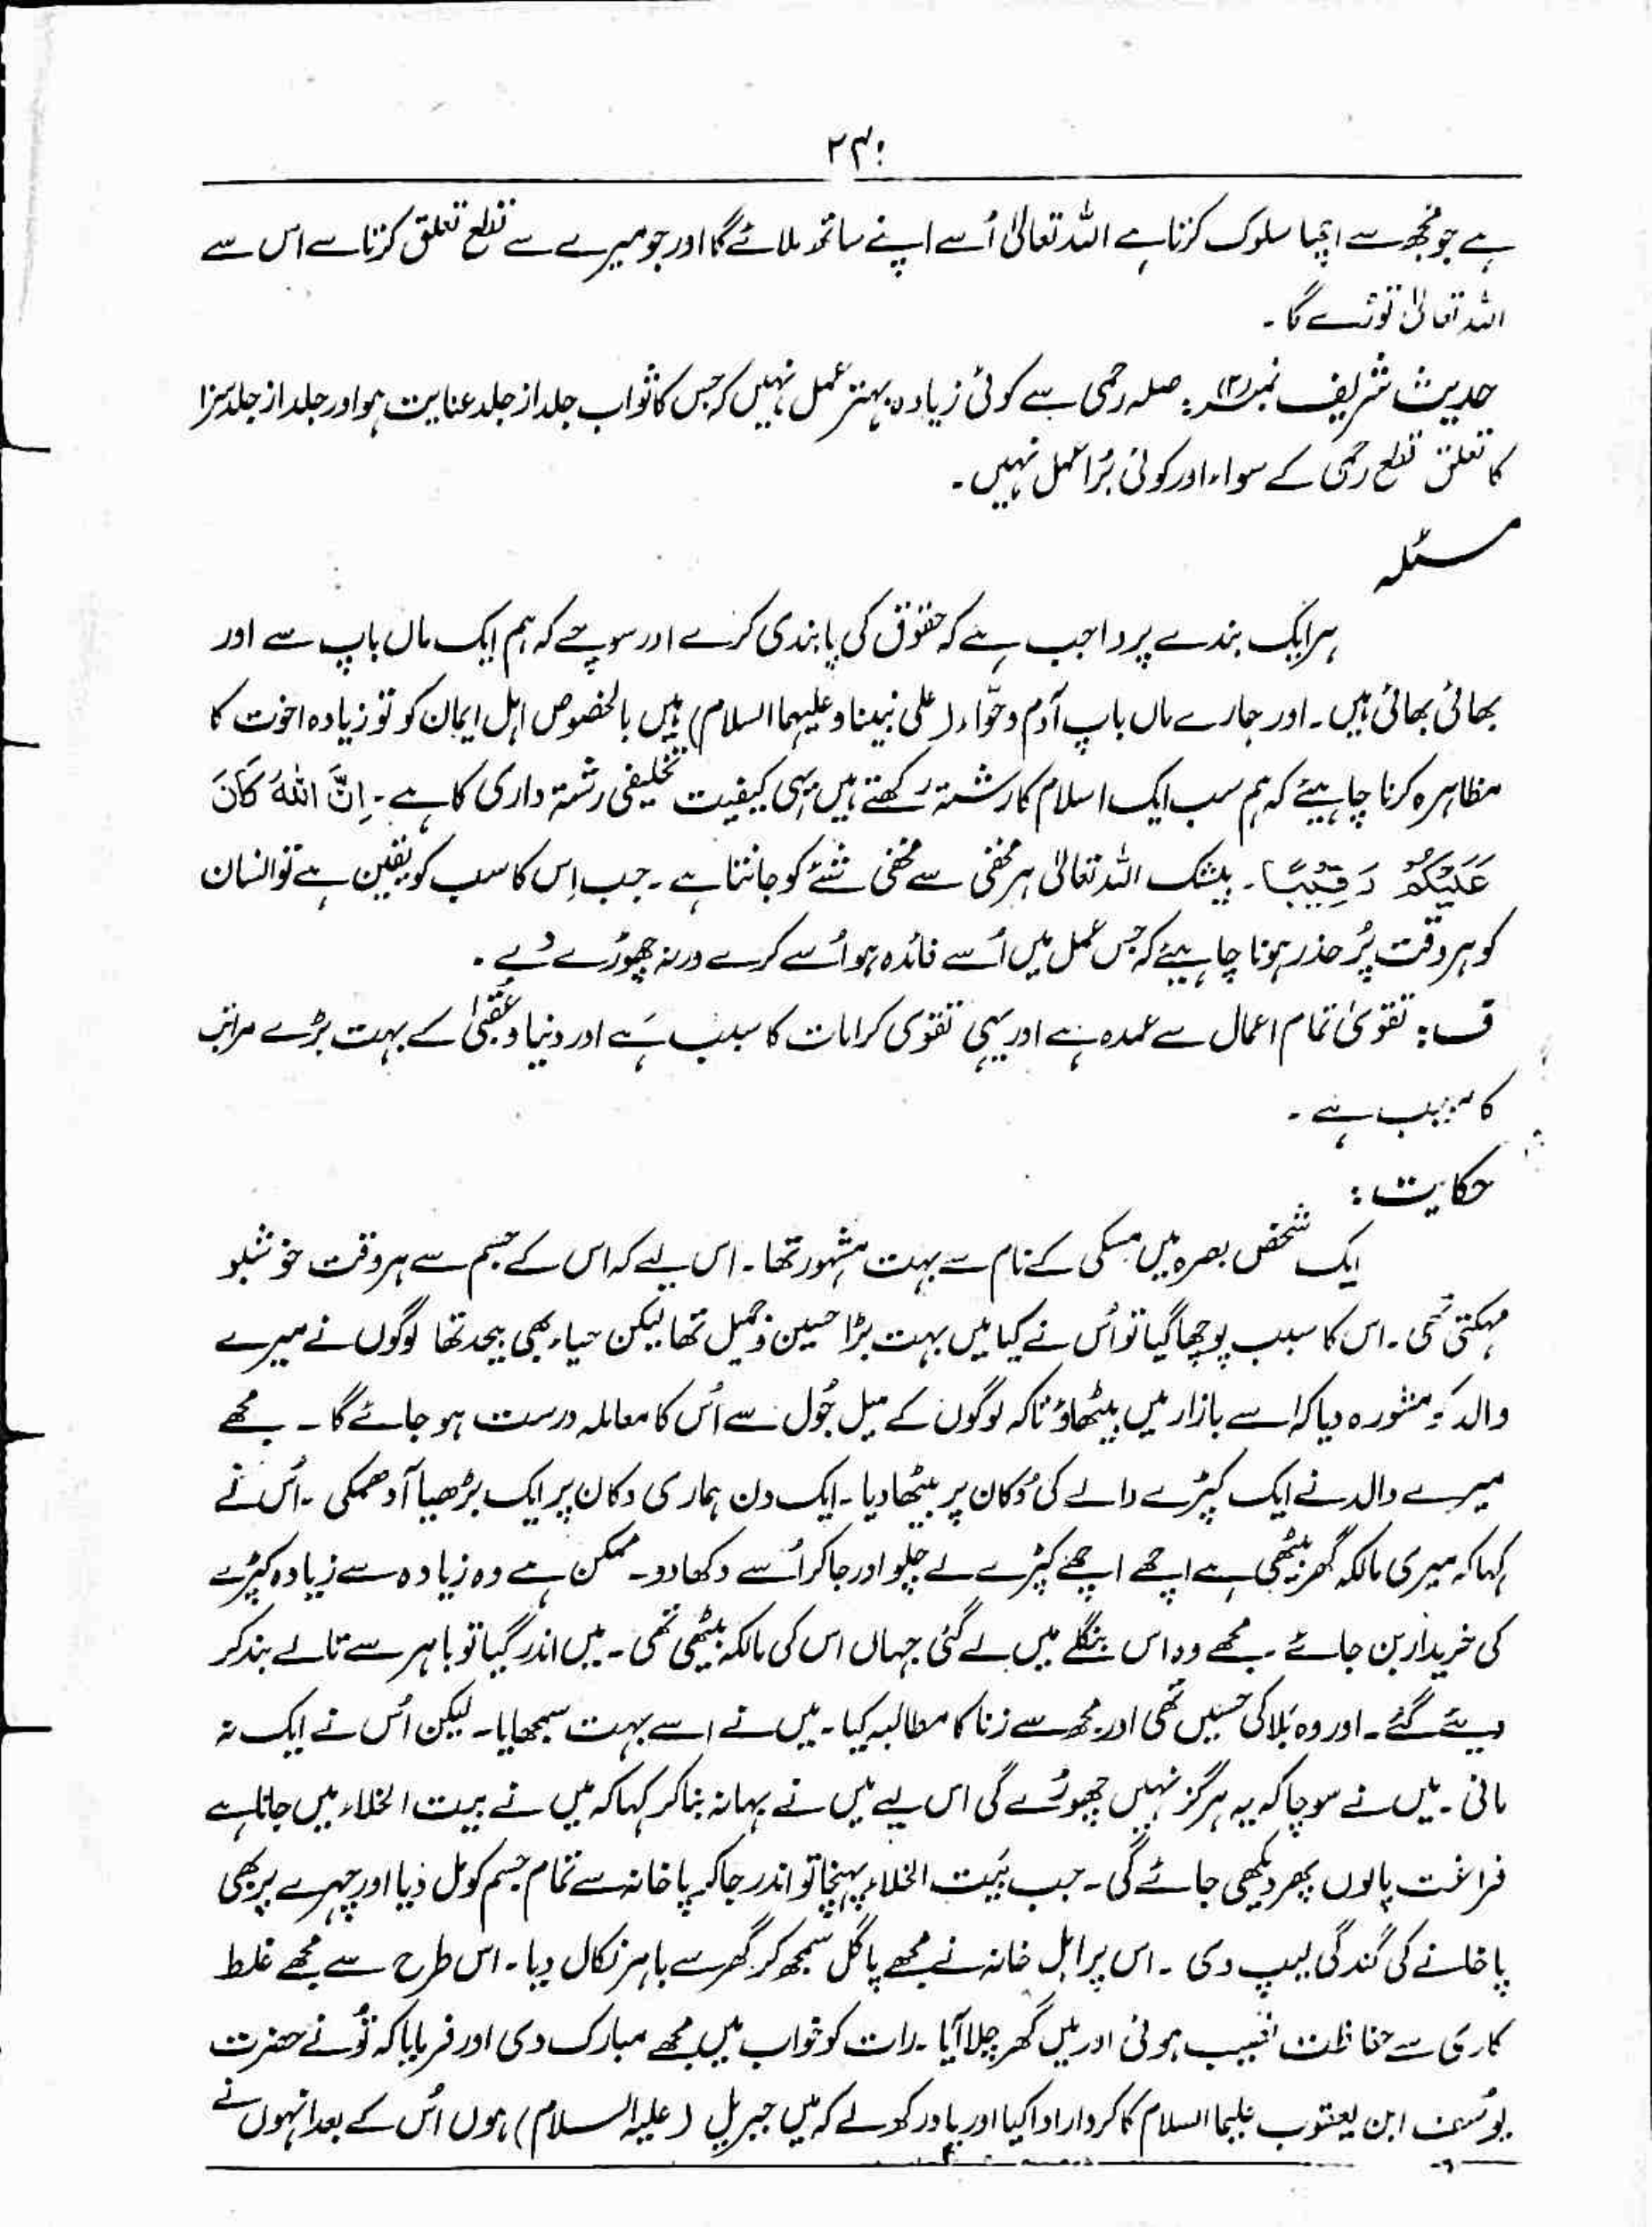 ۲۴۰
ہے جو مجھ سے اچھا سلوک کرتا ہے اللہ تعالیٰ اُسے اپنے ساتھ ملائے گا اور جو میرے سے قطع تعلق کرتا ہے اس سے
اللہ تعالیٰ توڑے گا۔
حدیث شریف نمبر (۳): صلہ رحمی سے کوئی زیادہ بہتر عمل نہیں کہ جس کا ثواب جلد از جلد عنایت ہو اور جلد از جلد سزا
کا تعلق قطع رحمی کے سواء اور کوئی بُرا عمل نہیں۔
مسئلہ
ہر ایک بندے پر واجب ہے کہ حقوق کی پابندی کرے اور سوچے کہ ہم ایک ماں باپ سے اور
بھائی بھائی ہیں۔ اور ہمارے ماں باپ آدم و حوّاء (علی نبینا و علیہما السلام) ہیں بالخصوص اہل ایمان کو تو زیادہ اخوت کا
مظاہرہ کرنا چاہیئے کہ ہم سب ایک اسلام کا رشتہ رکھتے ہیں یہی کیفیت تخلیفی رشتہ داری کا ہے۔ اِنَّ اللّٰهَ كَانَ
عَلَيْكُمْ رَقِيْبًا۔ بیشک اللہ تعالیٰ ہر مخفی سے مخفی شئے کو جانتا ہے۔ جب اِس کا سب کو یقین ہے تو انسان
کو ہر وقت پُر حذر ہونا چاہیئے کہ جس عمل میں اُسے فائدہ ہو اُسے کرے ورنہ چھوڑے دے۔
ف: تقویٰ تمام اعمال سے عمدہ ہے اور یہی تقویٰ کرامات کا سبب ہے اور دنیا و عُقبیٰ کے بہت بڑے مراتب
کا سبب ہے۔
حکایت:
ایک شخص بصرہ میں مسکی کے نام سے بہت مشہور تھا۔ اس لیے کہ اس کے جسم سے ہر وقت خوشبو
مہکتی تھی۔ اس کا سبب پوچھا گیا تو اُس نے کہا میں بہت بڑا حسین و جمیل تھا لیکن حیاء بھی بیحد تھا لوگوں نے میرے
والد کو مشورہ دیا کہ اسے بازار میں بیٹھاؤ تاکہ لوگوں کے میل جُول سے اُس کا معاملہ درست ہو جائے گا۔ مجھے
میرے والد نے ایک کپڑے والے کی دُکان پر بیٹھا دیا۔ ایک دن ہماری دکان پر ایک بڑھیا آ دھمکی۔ اُس نے
کہا کہ میری مالکہ گھر بیٹھی ہے اچھے اچھے کپڑے لے چلو اور جا کر اُسے دکھا دو۔ ممکن ہے وہ زیادہ سے زیادہ کپڑے
کی خریدار بن جائے۔ مجھے وہ اس بنگلے میں لے گئی جہاں اس کی مالکہ بیٹھی تھی۔ میں اندر گیا تو باہر سے تالے بند کر
دیئے گئے۔ اور وہ بَلا کی حسیں تھی اور مجھ سے زنا کا مطالبہ کیا۔ میں نے اسے بہت سمجھایا۔ لیکن اُس نے ایک نہ
مانی۔ میں نے سوچا کہ یہ ہرگز نہیں چھوڑے گی اس لیے میں نے بہانہ بنا کر کہا کہ میں نے بیت الخلاء میں جانا ہے
فراغت پالوں پھر دیکھی جائے گی۔ جب بَیت الخلاء پہنچا تو اندر جا کر پاخانہ سے تمام جسم کو مل دیا اور چہرے پر بھی
پاخانے کی گندگی لیپ دی۔ اس پر اہل خانہ نے مجھے پاگل سمجھ کر گھر سے باہر نکال دیا۔ اس طرح سے مجھے غلط
کاری سے حفاظت نصیب ہوئی اور میں گھر چلا آیا۔ رات کو خواب میں مجھے مبارک دی اور فرمایا کہ تُو نے حضرت
یوسُف ابن یعقوب علیہما السلام کا کردار ادا کیا اور یاد رکھ لے کہ میں جبریل (علیہ السلام) ہوں اُس کے بعد انہوں نے